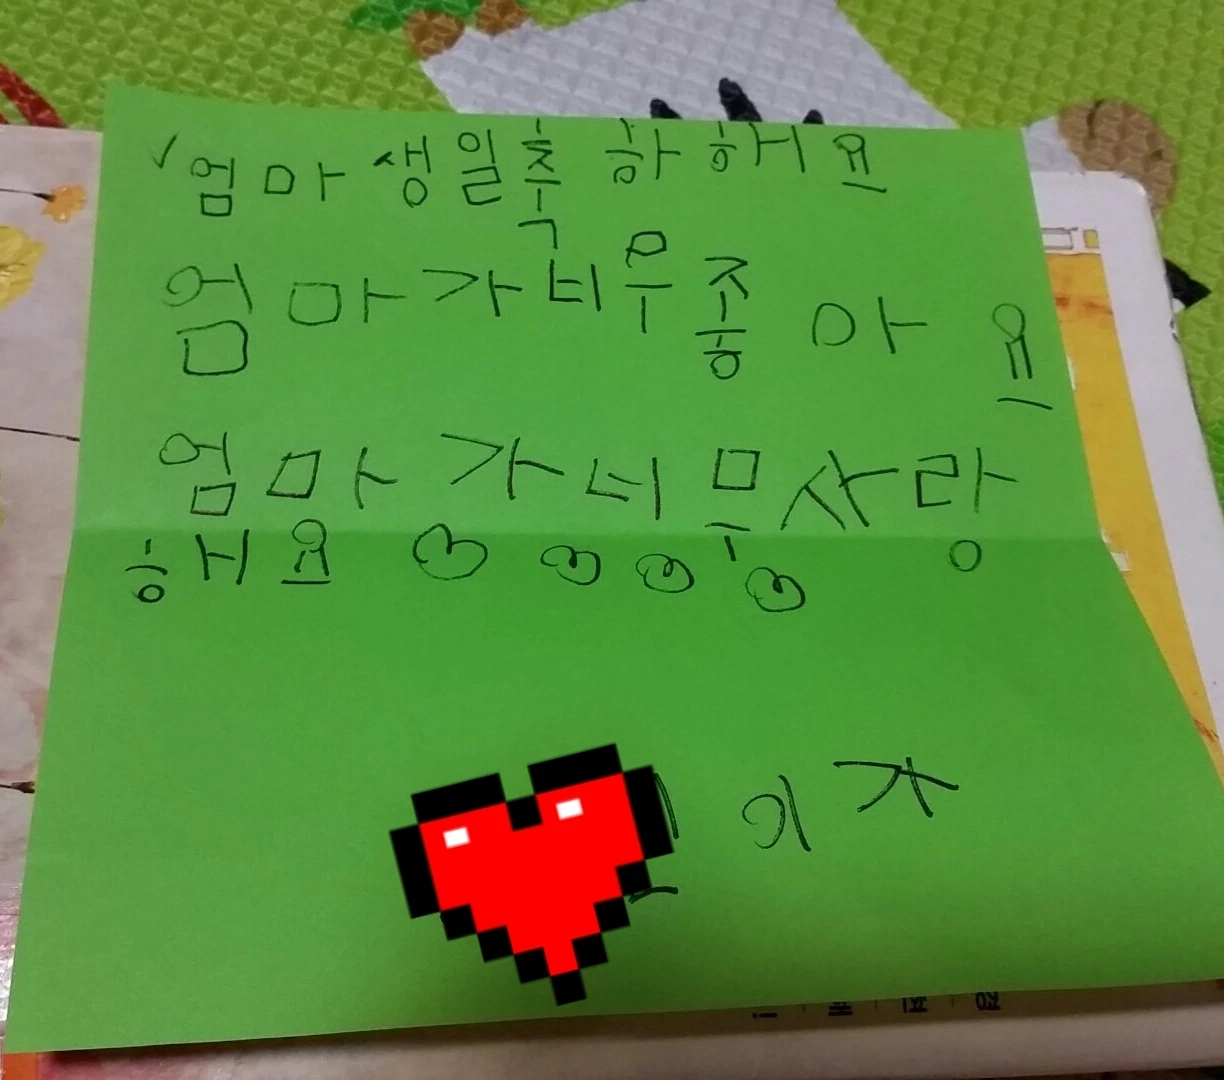 엄마 생일축 하해요
엄마가너무좋 아 요
엄마 가너무사랑
해요 ♡ ♡ ♡ ♡
이 가